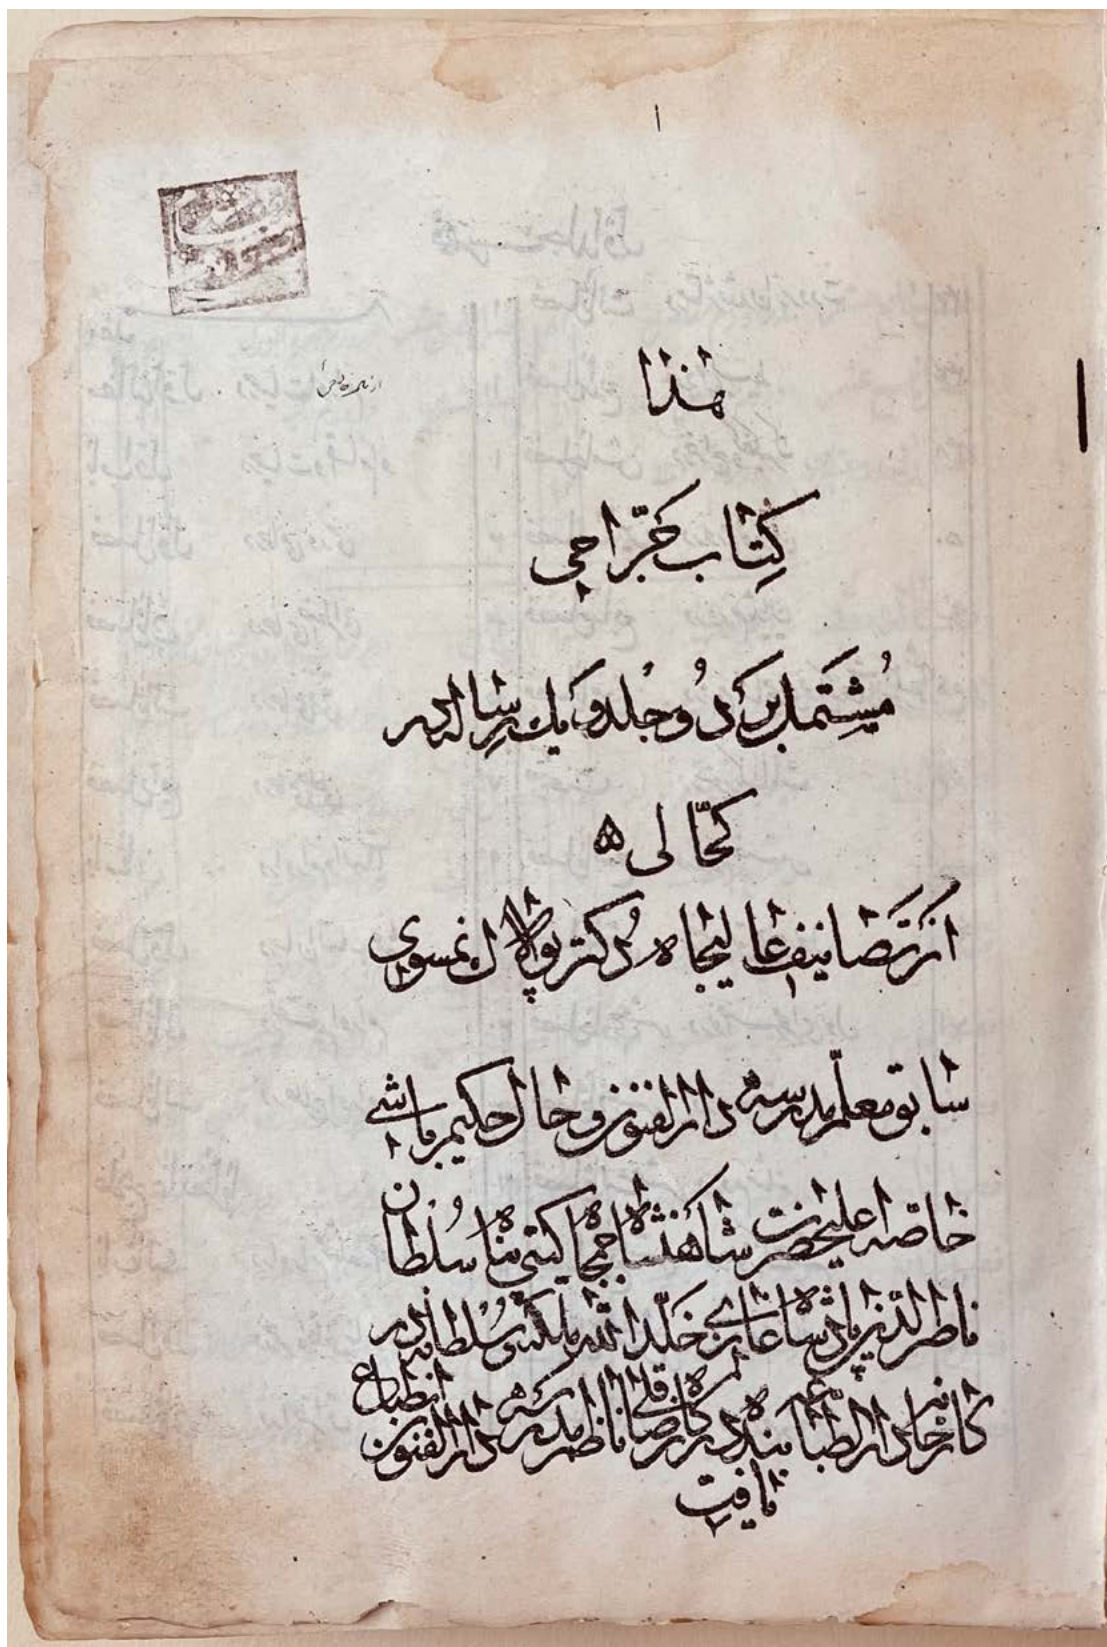 هذا
كِتاب جَرّاحی
مُشتَمل بر دُو جُلد و یك رِساله در
كحّالی
از تَصانیف عالیجاه دُكتر پولاك نمسوی
سابق معلّم مدرسه دارالفنون و حال حكیم باشی
خاصّه اعلیحضرت شاهنشاه جمجاه گیتی پناه سُلطان
ناصرالدّین پادشاه غازی خلّد الله ملكه و سُلطانه در
كارخانه دارالطباعه بنده درگاه رضاقلی ناظر مدرسه دارالفنون انطباع
یافت